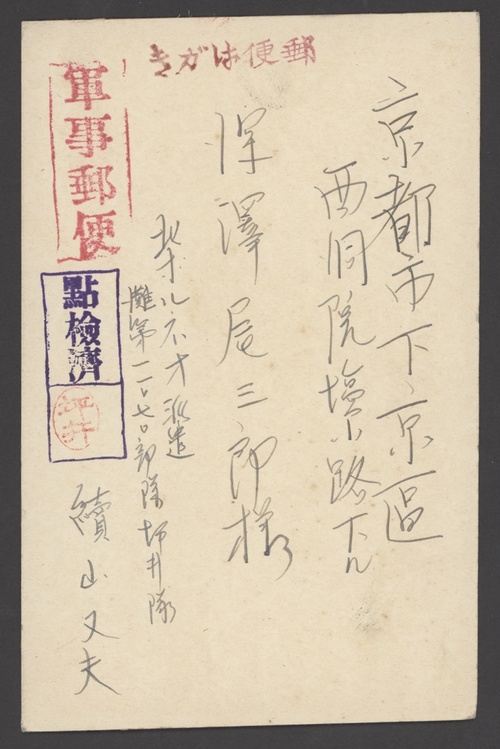 郵便はがき
京都市下京區
西洞院塩小路下ル
深澤尾三郎様
北ボルネオ派遣
灘第一一〇七〇部隊坪井隊
續山又夫
軍事郵便
點檢濟
坪井